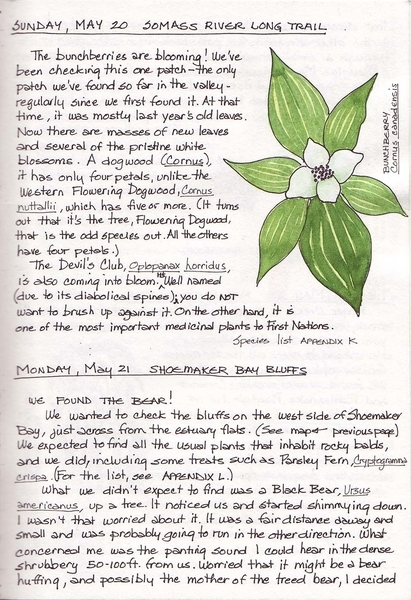 SUNDAY, MAY 20 SOMASS RIVER LONG TRAIL
The bunchberries are blooming! We've
been checking this one patch - the only
patch we've found so far in the valley -
regularly since we first found it. At that
time, it was mostly last year's old leaves.
Now there are masses of new leaves
and several of the pristine white
blossoms. A dogwood (Cornus),
it has only four petals, unlike the
Western Flowering Dogwood, Cornus
nuttallii, which has five or more. (It turns
out that it's the tree, Flowering Dogwood,
that is the odd species out. All the others
have four petals.)
BUNCHBERRY
Cornus canadensis
The Devil's Club, Oplopanax horridus,
is also coming into bloom. Well named
(due to its diabolical spines), you do NOT
want to brush up against it. On the other hand, it is
one of the most important medicinal plants to First Nations.
Species list APPENDIX K
MONDAY, May 21 SHOEMAKER BAY BLUFFS
WE FOUND THE BEAR!
We wanted to check the bluffs on the west side of Shoemaker
Bay, just across from the estuary flats. (See map ← previous page)
We expected to find all the usual plants that inhabit rocky balds,
and we did, including some treats such as Parsley Fern, Cryptogramma
crispa. (For the list, see APPENDIX L.)
What we didn't expect to find was a Black Bear, Ursus
americanus, up a tree. It noticed us and started shimmying down.
I wasn't that worried about it. It was a fair distance away and
small and was probably going to run in the other direction. What
concerned me was the panting sound I could hear in the dense
shrubbery 50-100ft. from us. Worried that it might be a bear
huffing, and possibly the mother of the treed bear, I decided